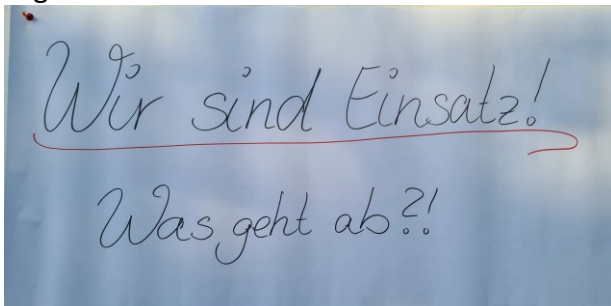 Wir sind Einsatz!
Was geht ab?!